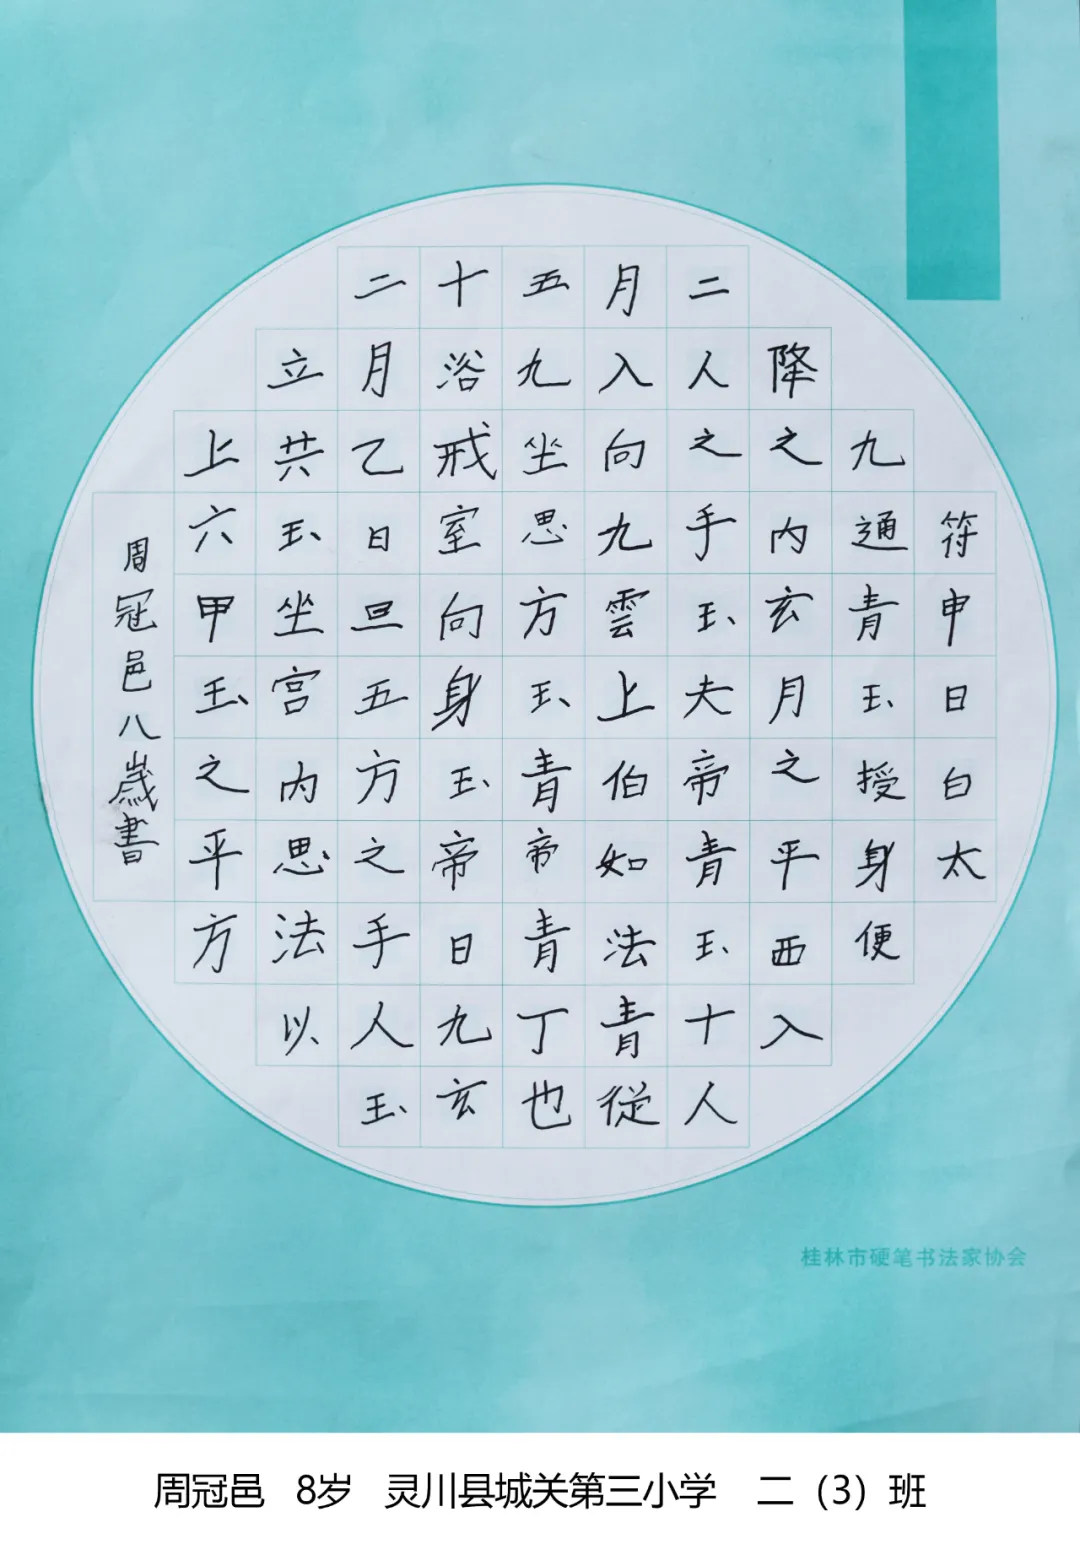 符申日白太
九通青玉授身便
降之内玄月之平西入
二人之手玉夫帝青玉十人
月入向九雲上伯如法青從
五九坐思方玉青帝青丁也
十浴戒室向身玉帝日九玄
二月乙日旦五方之手人玉
立共玉坐宫内思法以
上六甲玉之平方
周冠邑八歲書
桂林市硬笔书法家协会
周冠邑 8岁 灵川县城关第三小学 二（3）班